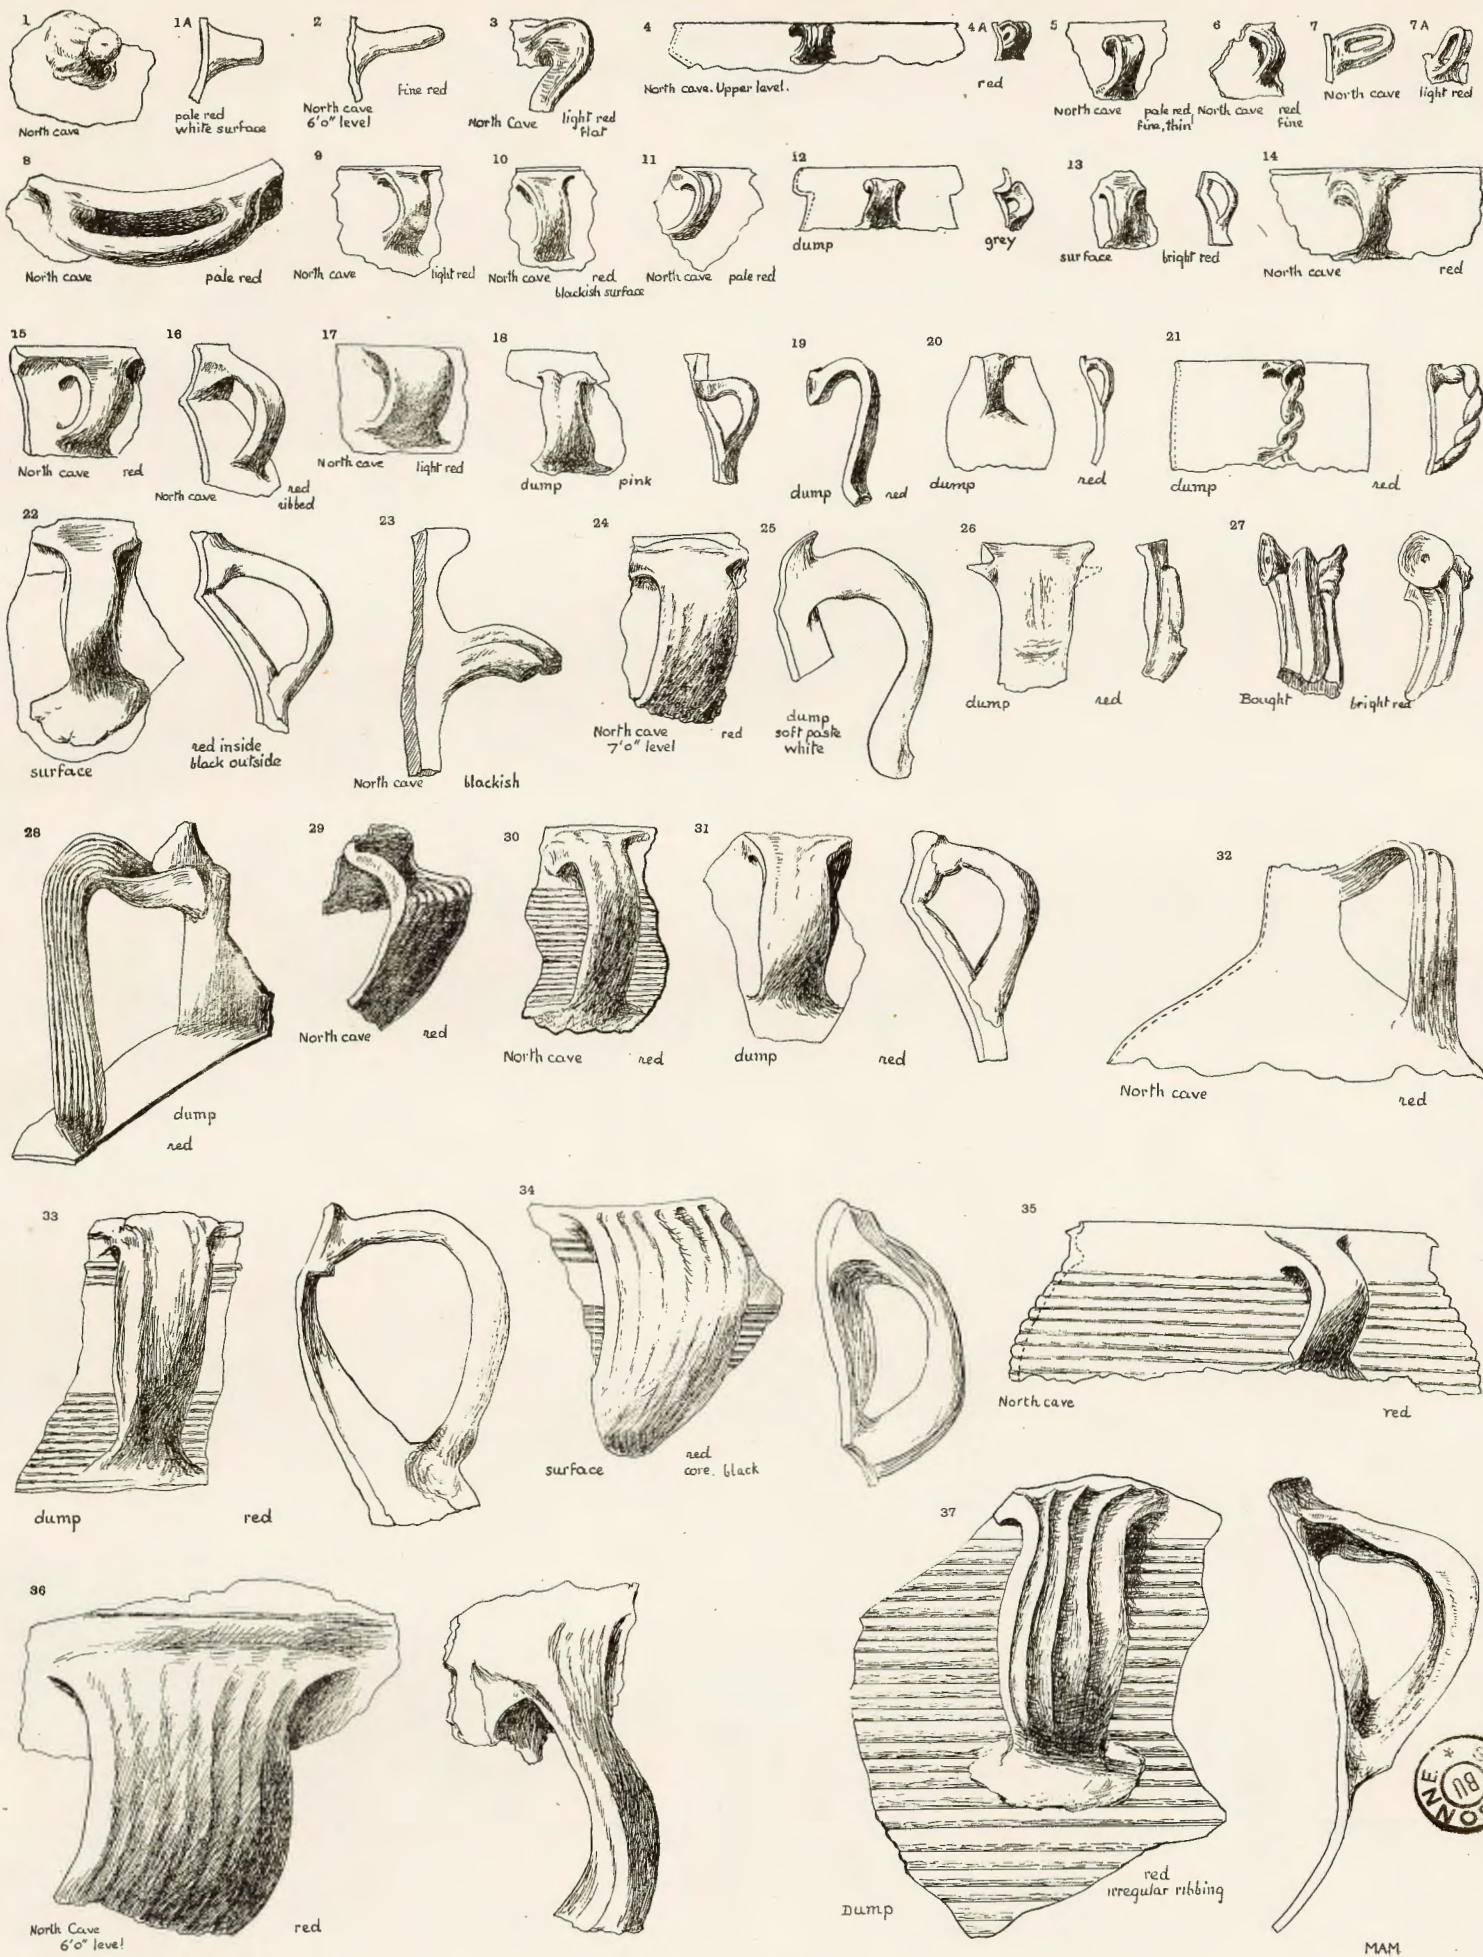 1
1A
2
3
4
4A
5
6
7
7A
North cave
pale red
white surface
North cave
6'0" level
fine red
North Cave
light red
flat
North cave. Upper level.
red
North cave
pale red,
fine, thin
North cave
red
fine
North cave
light red
8
9
10
11
12
13
14
North cave
pale red
North cave
light red
North cave
red
blackish surface
North cave
pale red
dump
grey
surface
bright red
North cave
red
15
16
17
18
19
20
21
North cave
red
North cave
red
ribbed
North cave
light red
dump
pink
dump
red
dump
red
dump
red
22
23
24
25
26
27
surface
red inside
black outside
North cave
blackish
North cave
7'0" level
red
dump
soft paste
white
dump
red
Bought
bright red
28
29
30
31
32
dump
red
North cave
red
North cave
red
dump
red
North cave
red
33
34
35
dump
red
surface
red
core. black
North cave
red
36
37
North Cave
6'0" level
red
Dump
red
irregular ribbing
BU
MAM